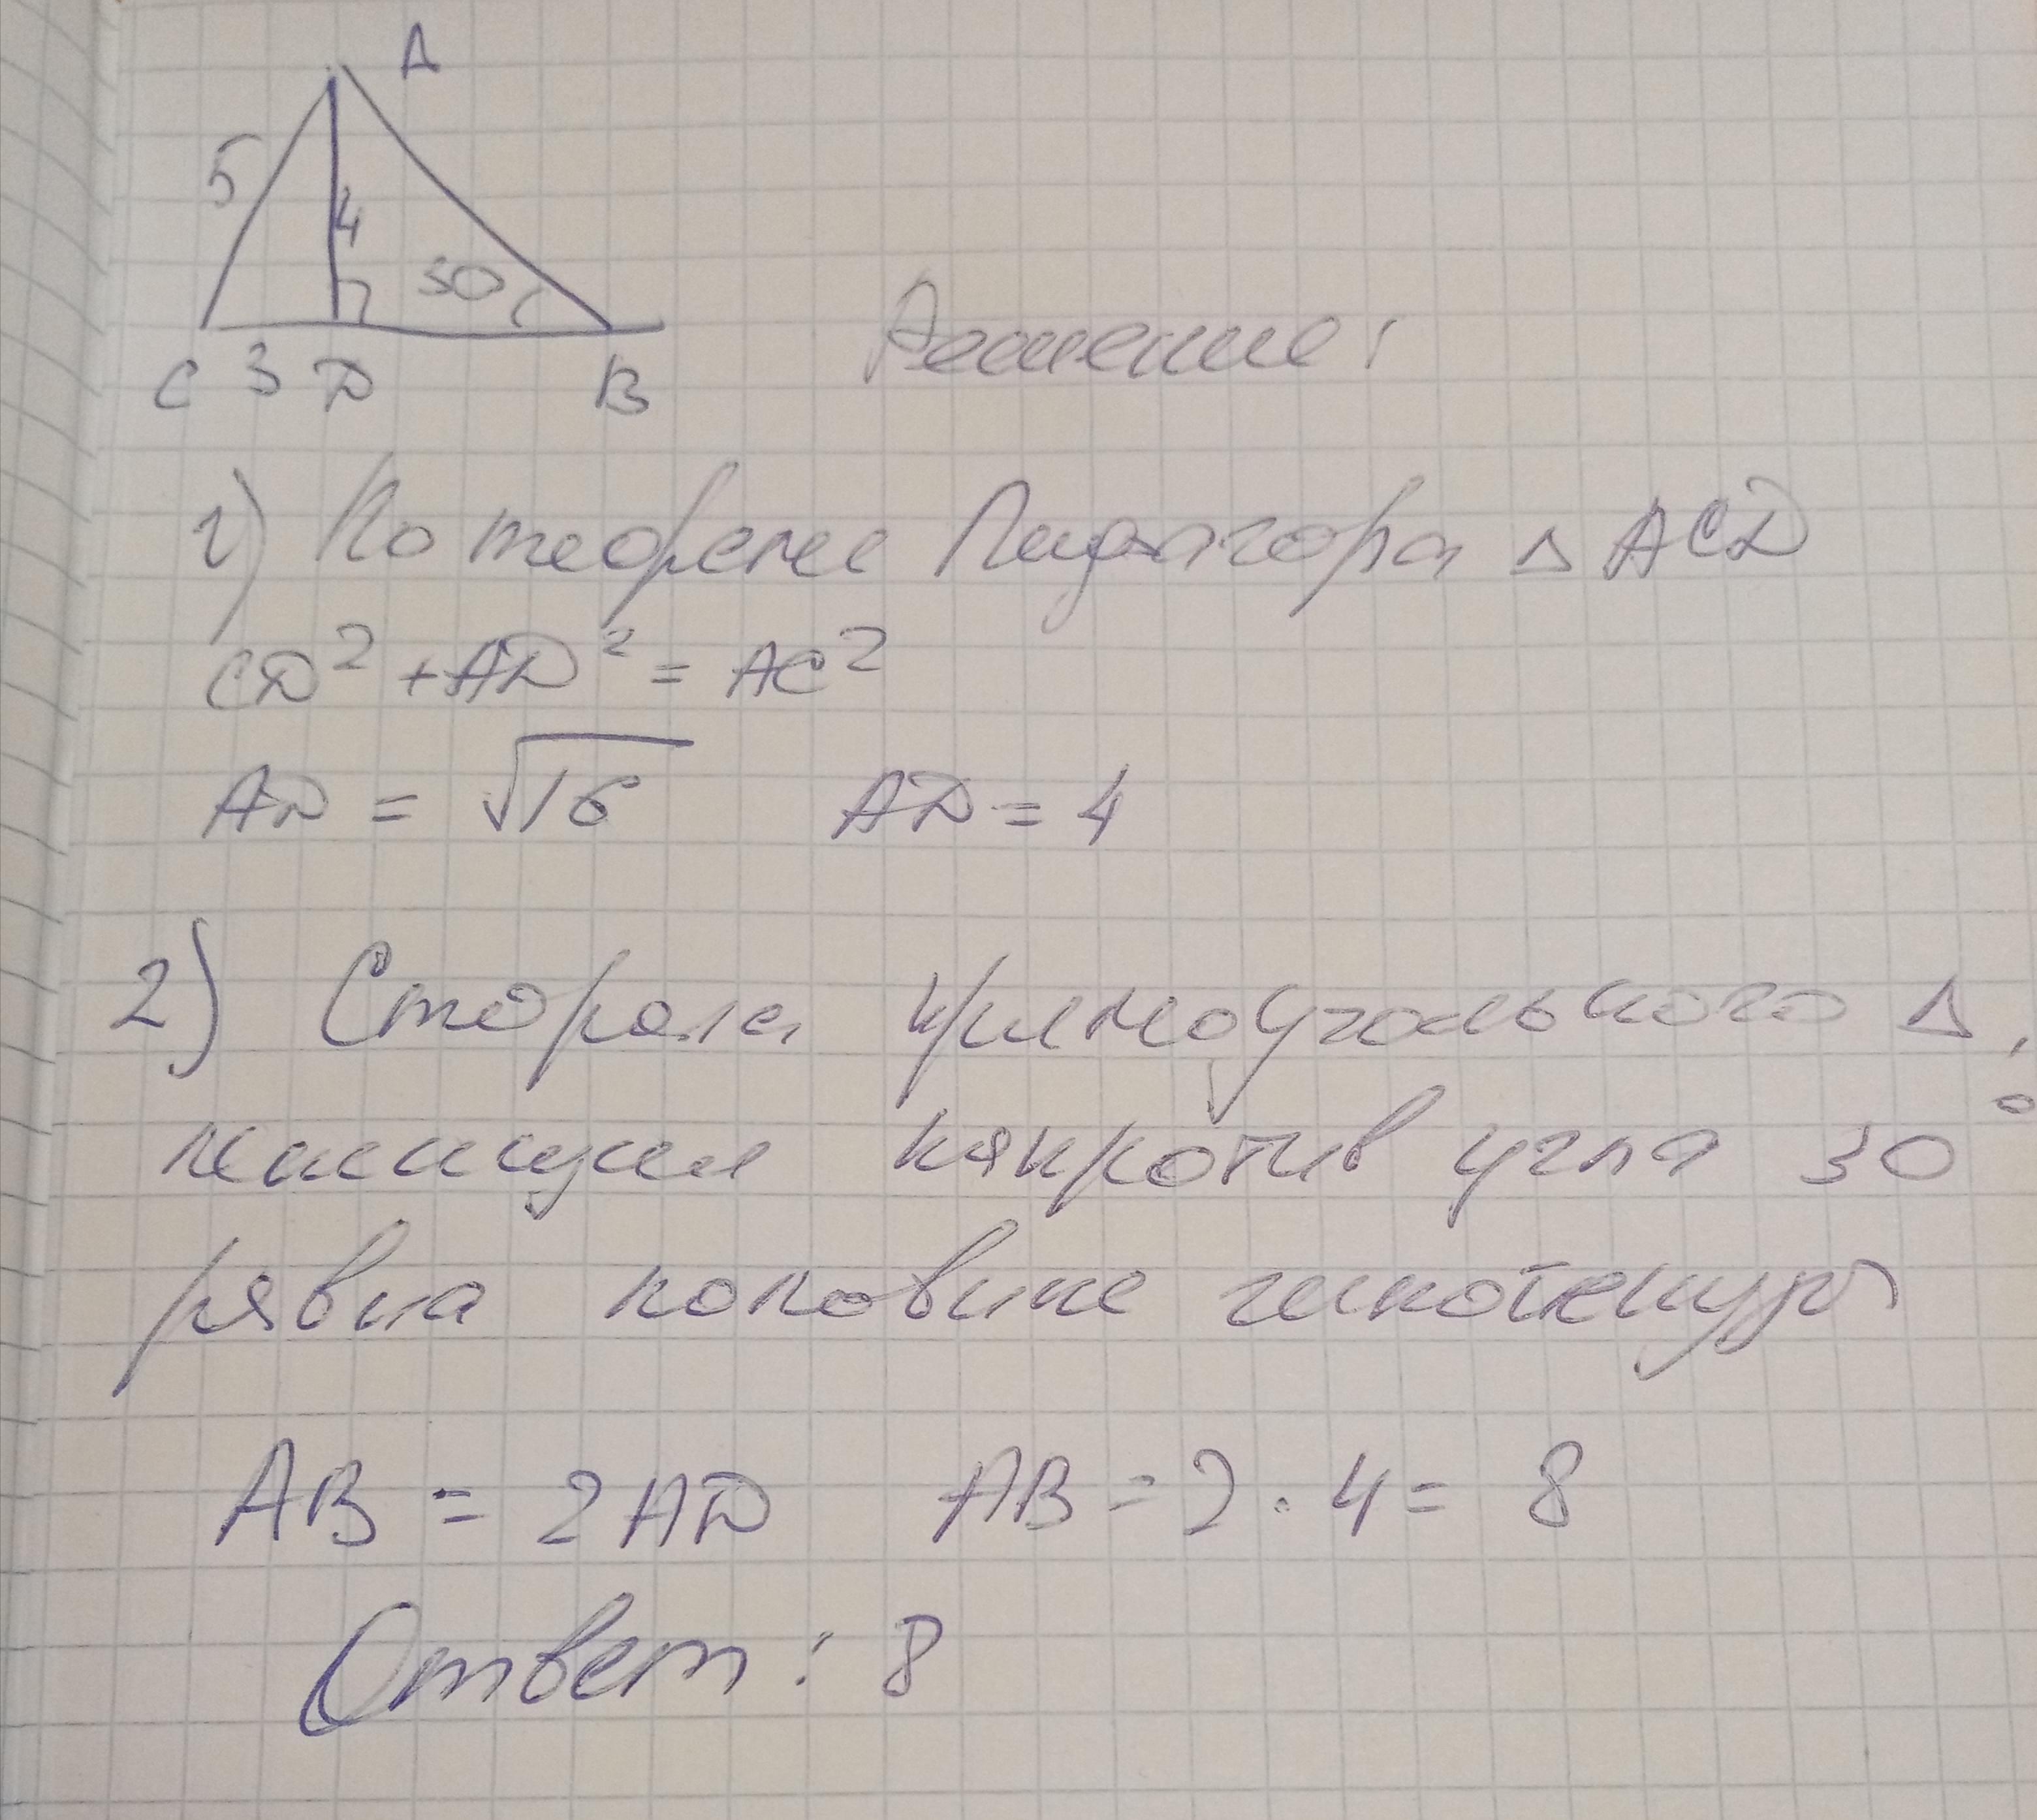 A
5
4
30
C 3 D B
Решение:
1) По теореме Пифагора △ ACD
CD² + AD² = AC²
AD = √16 AD = 4
2) Сторона прямоугольного △,
лежащая напротив угла 30°
равна половине гипотенузы
AB = 2AD AB = 2 · 4 = 8
Ответ: 8